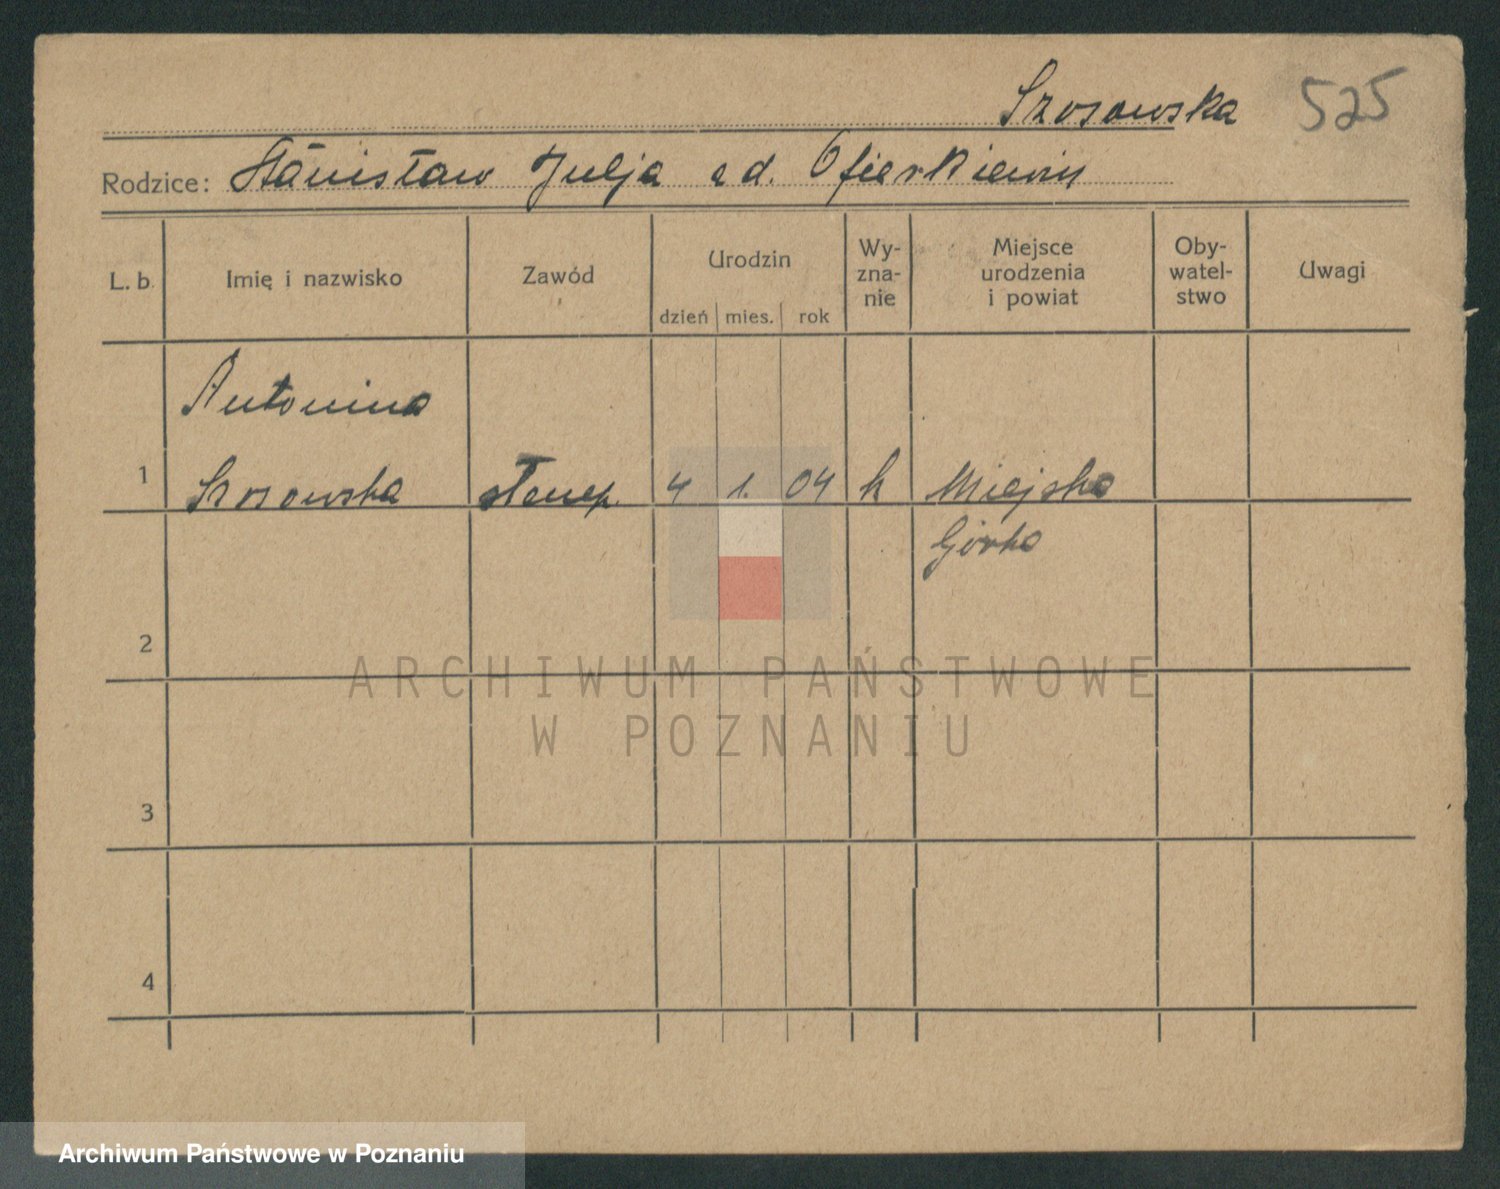 Szosowska 525
Rodzice: Stanisław Julja z d. Ofierkiewicz
L. b. Imię i nazwisko Zawód Urodzin Wy-zna-nie Miejsce urodzenia i powiat Oby-watel-stwo Uwagi
dzień mies. rok
Antonina
1 Szosowska 4 1. 04 k Miejska
Górka
2
ARCHIWUM PAŃSTWOWE
W POZNANIU
3
4
Archiwum Państwowe w Poznaniu